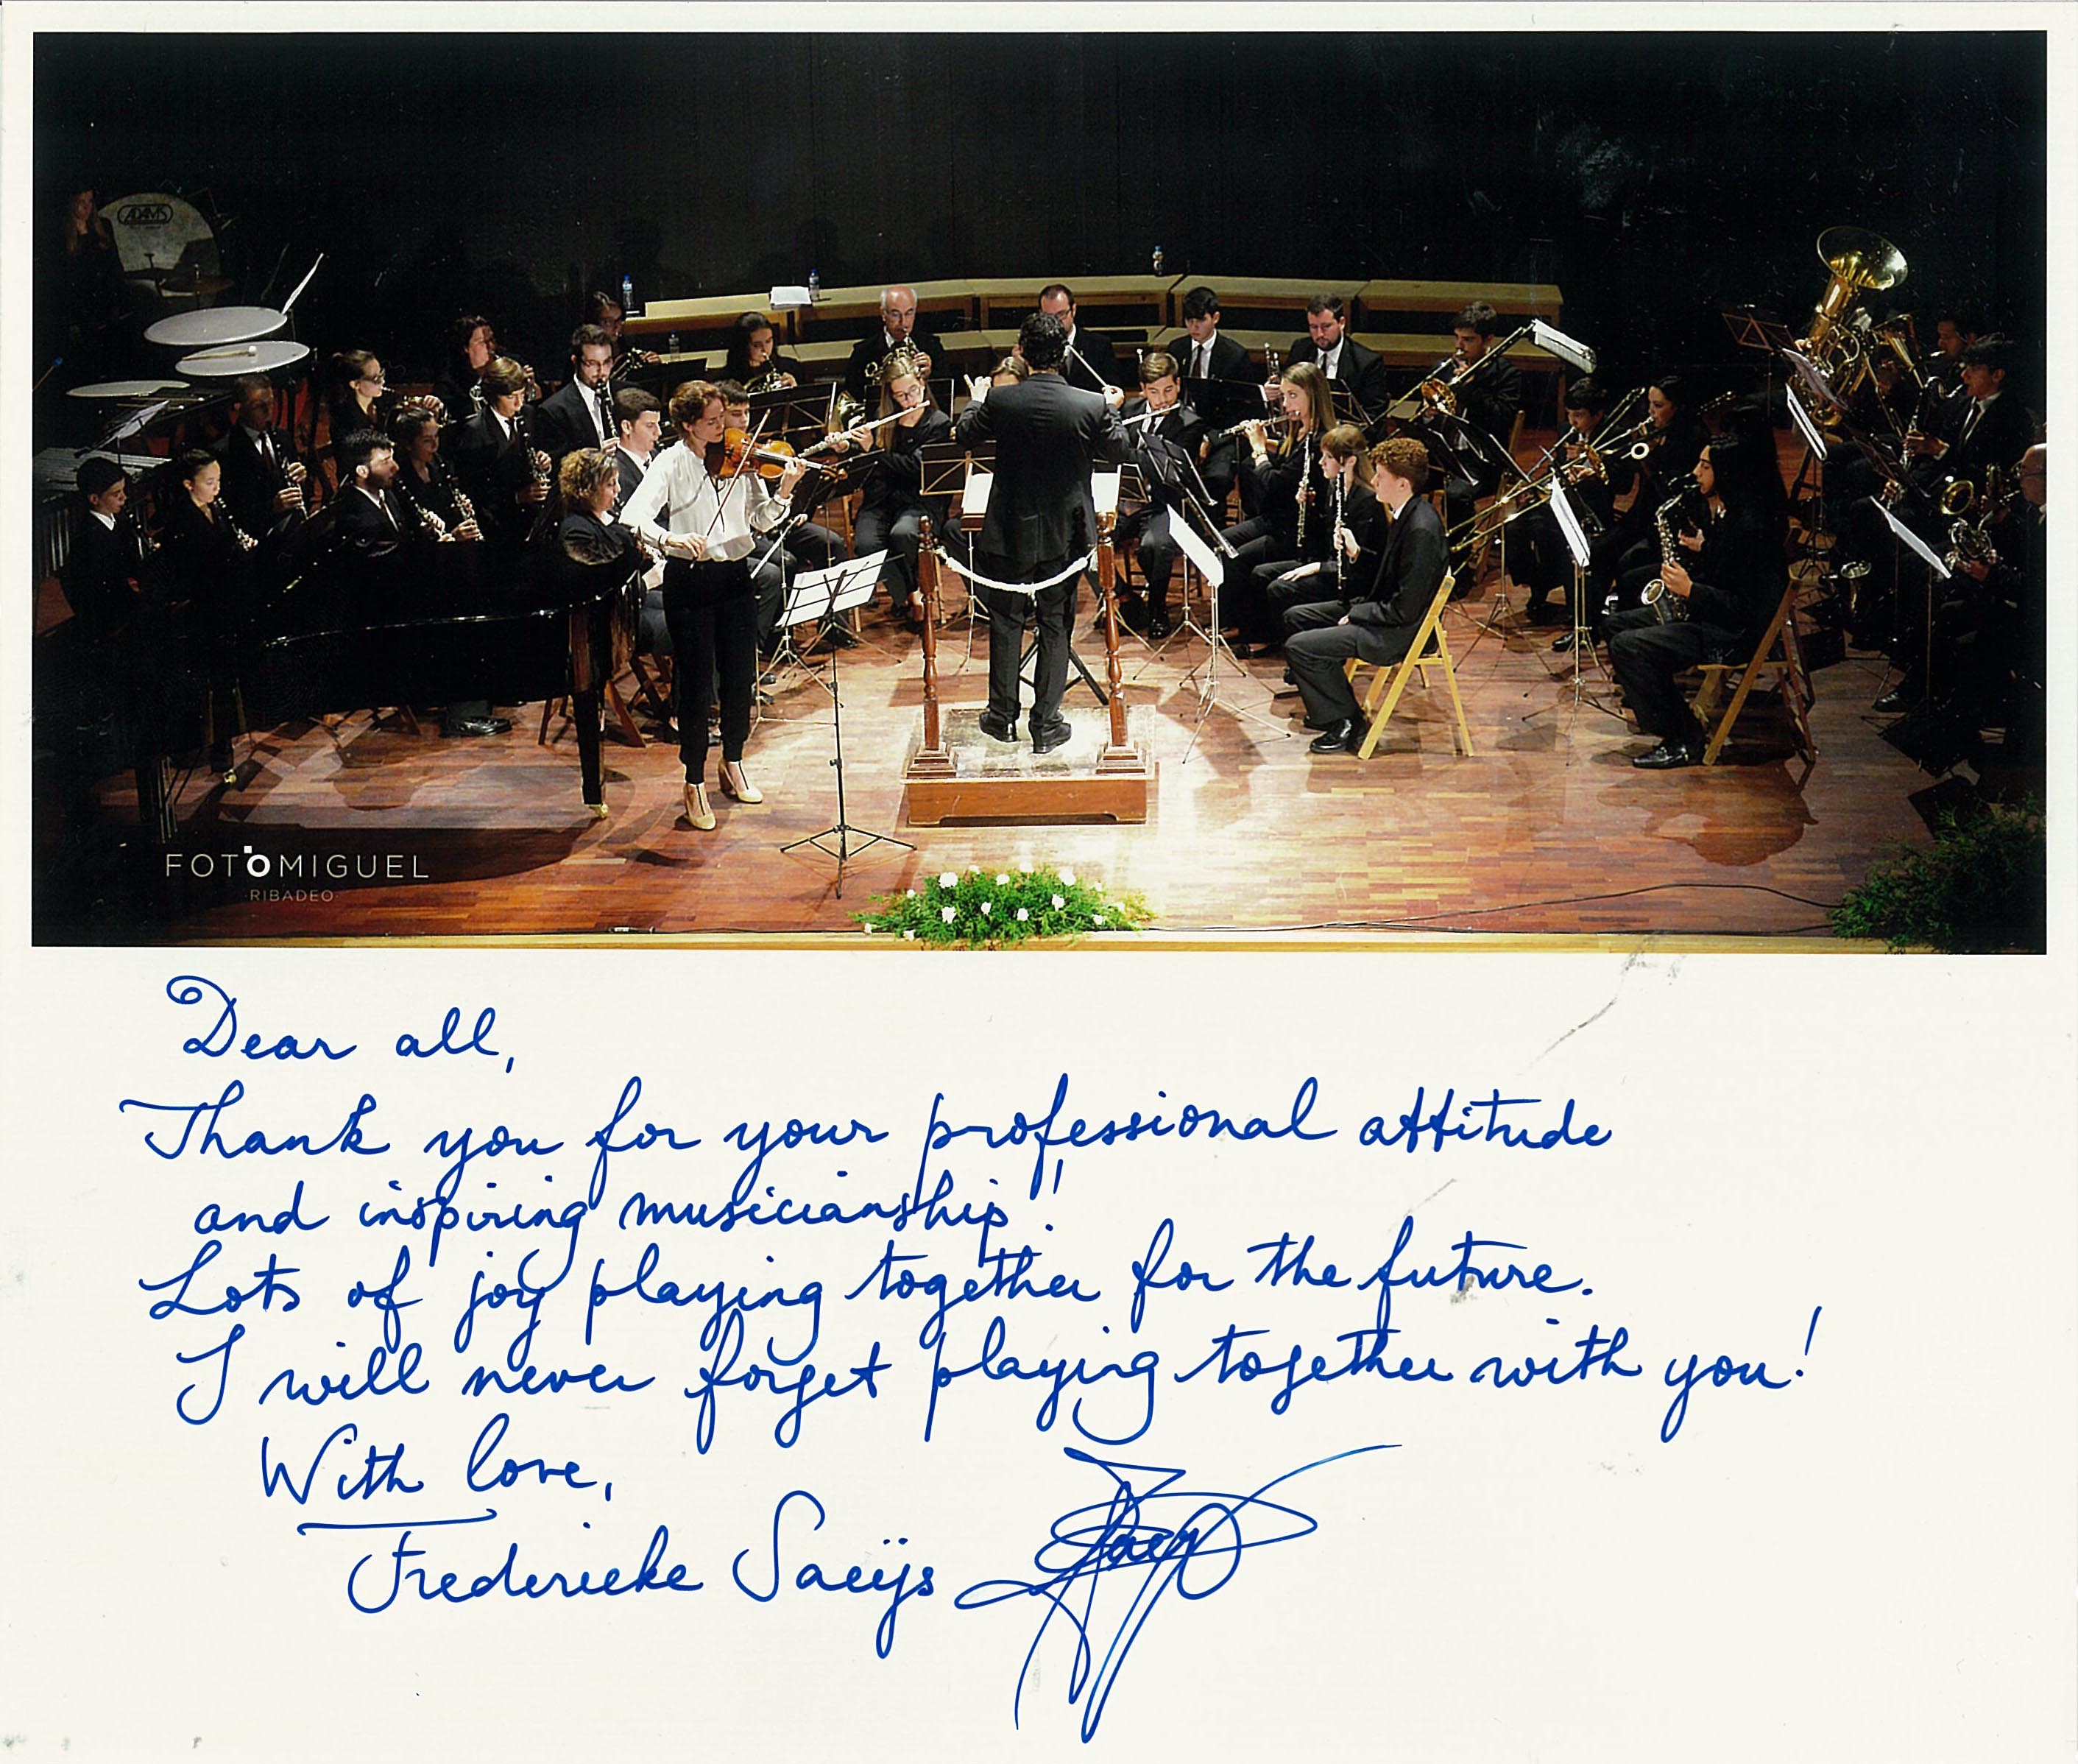 ADAMS
FOTOMIGUEL
RIBADEO
Dear all,
Thank you for your professional attitude
and inspiring musicianship!
Lots of joy playing together for the future.
I will never forget playing together with you!
With love,
Frederieke Saeijs